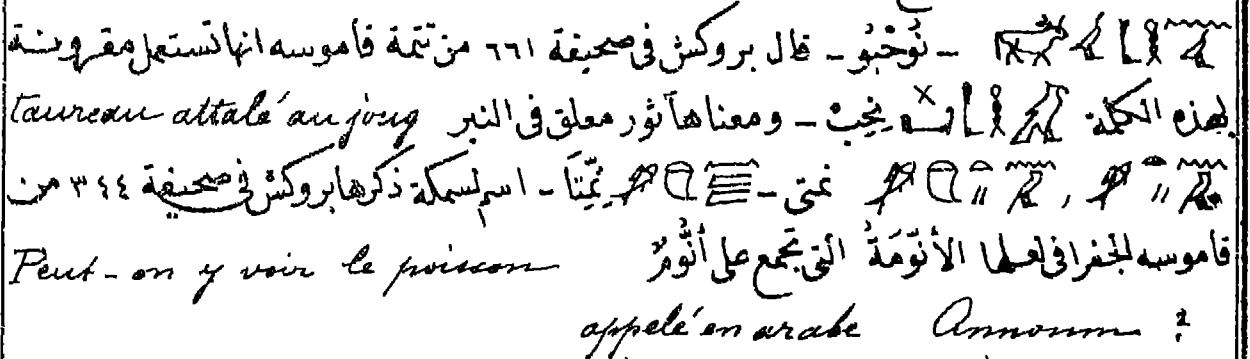 ـ نُوحْبُو ـ قال بروكش فى صحيفة ٦٦١ من تتمة قاموسه انها تستعمل مقرونة
لهذه الكلمة نِحِبْ ـ ومعناها ثور معلق فى النير taureau attalé au joug
نمتى ـ نِمِّتَا ـ اسم لسمكة ذكرها بروكش فى صحيفة ٣٤٤ من
قاموسه الجغرافى لعلها الأنّومَةُ التى تجمع على أنُّومٌ Peut-on y voir le poisson
appelé en arabe Annoum ?